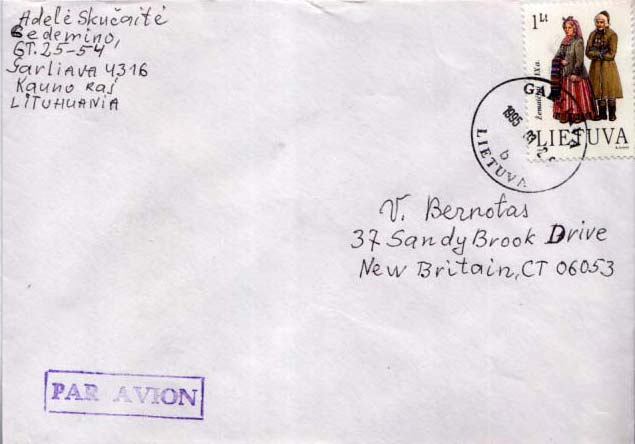 Adelė Skučaitė
Gedemino,
GT. 25-54
Garliava 4316
Kauno raj
LITUHUANIA
1 Lt
XIXa.
LIETUVA
GA
1995
6
LIETUVA
V. Bernotas
37 Sandy Brook Drive
New Britain, CT 06053
PAR AVION